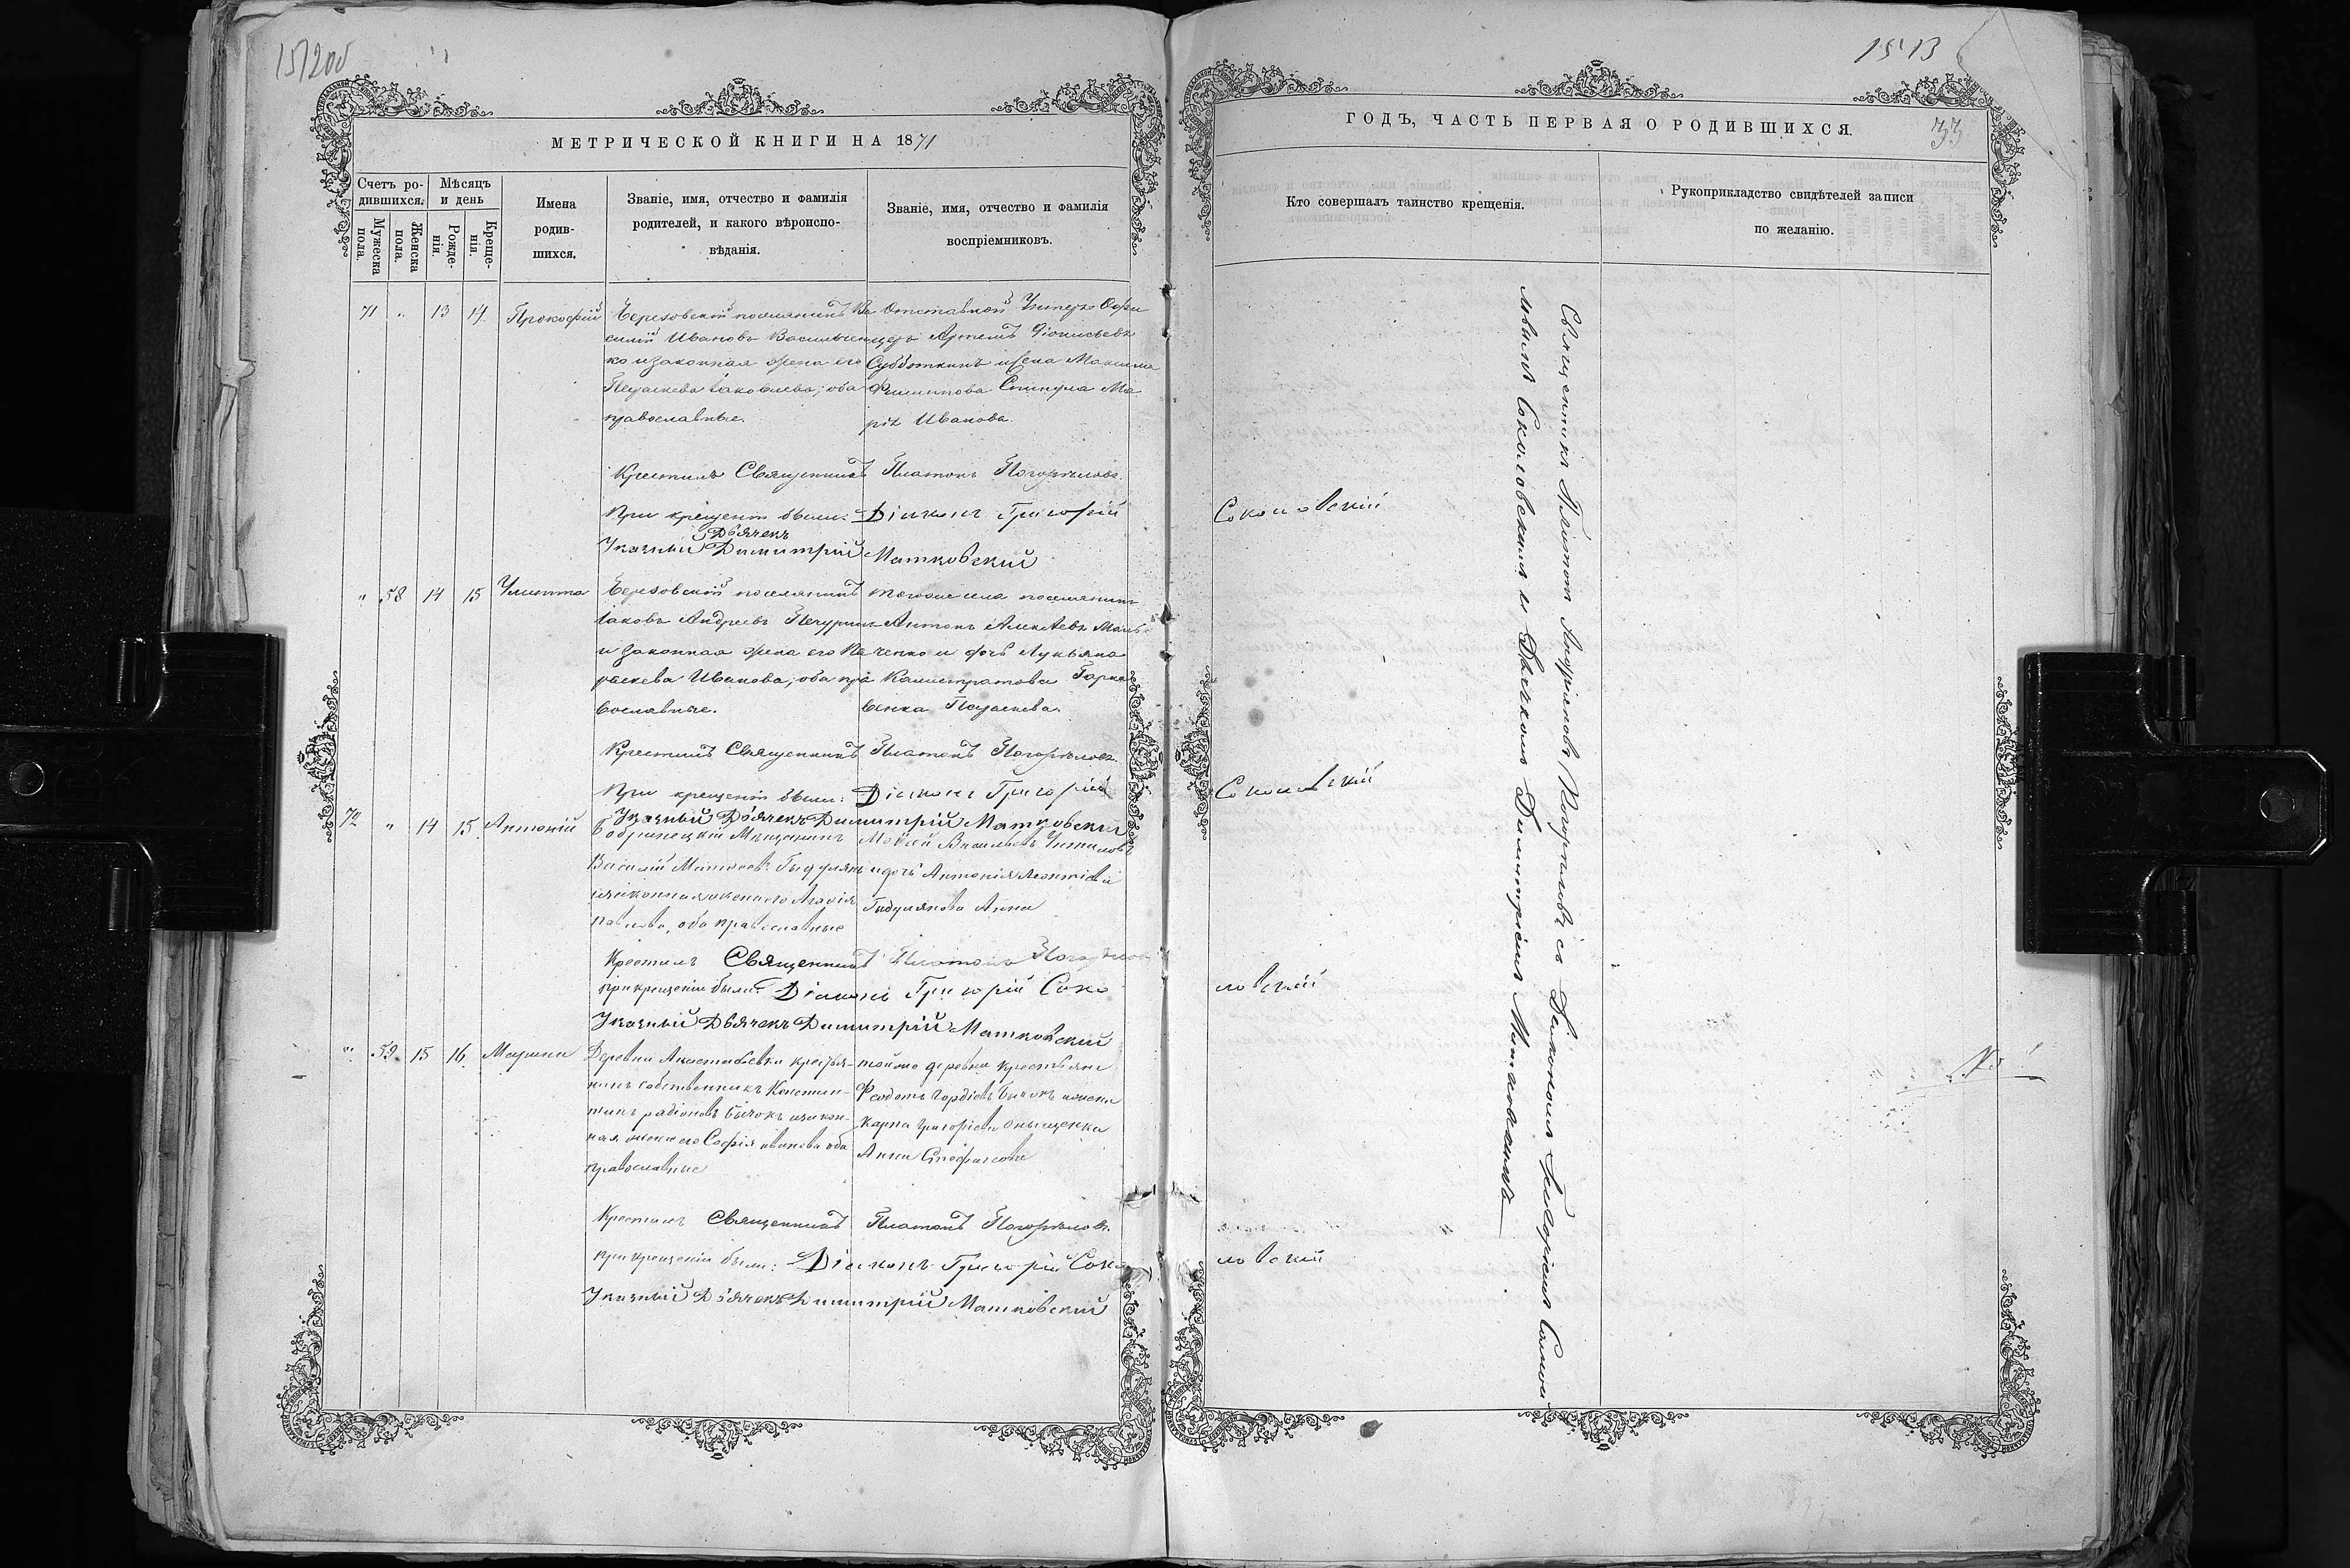 1512об
МЕТРИЧЕСКОЙ КНИГИ НА 1871
Счетъ ро-
дившихся.
Мѣсяцъ
и день
Мужеска
пола.
Женска
пола.
Рожде-
нія.
Креще-
нія.
Имена
родив-
шихся.
Званіе, имя, отчество и фамилія
родителей, и какого вѣроиспо-
вѣданія.
Званіе, имя, отчество и фамилія
воспріемниковъ.
71 " 13 14 Прокофій
Березовскій поселянинъ Ва
силій Ивановъ Васильчен
ко и законная жена его
Параскева Іаковлева; оба
православные.
Отставной Унтеръ Офи
церъ Артемъ Діонисьевъ
Субботкинъ и жена Максима
Филиппова Ма
рія Иванова.
Крестилъ Священникъ Платонъ Погорѣловъ.
При крещеніи были: Діаконъ Григорій
Указный Дьячекъ Димитрій Матковскій
" 58 14 15 Улиита
Березовскій поселянинъ
Іаковъ Андреевъ Печурин
и законная жена его Па
раскева Иванова; оба пра
вославные.
тогоже села поселянинъ
Антонъ Алексѣевъ
ченко и дочь Лукьяна
Калистратова
венка Параскева.
Крестилъ Священникъ Платонъ Погорѣловъ
При крещеніи были: Діаконъ Григорій
Указный Дьячекъ Димитрій Матковскій
72 " 14 15 Антоній
Бобринецкій Мѣщанинъ
Василій Матвеевъ
и законная жена его Агафія
Павлова, оба православные
Мойсей Васильевъ
и дочь Антонія Леонтіева
Анна
Крестилъ Священникъ Платонъ Погорѣловъ
При крещеніи были: Діаконъ Григорій Соко
Указный Дьячекъ Димитрій Матковскій
" 59 15 16 Марина
Деревни Анастасьевки крестья-
нинъ собственникъ Констан-
тинъ Радіоновъ Бычокъ и закон-
ная жена его Софія Иванова оба
православные
тойже деревни крестьяне
Феодотъ Гордіевъ Бычокъ и жена
Карпа Григоріева Онищенка
Анна Стефанова
Крестилъ Священникъ Платонъ Погорѣловъ.
При крещеніи были: Діаконъ Григорій Соко
Указный Дьячекъ Димитрій Матковскій
1513
ГОДЪ, ЧАСТЬ ПЕРВАЯ О РОДИВШИХСЯ.
33
Кто совершалъ таинство крещенія.
Рукоприкладство свидѣтелей записи
по желанію.
Соколовскій
Соколовскій
ловскій
ловскій
Священникъ Платонъ Андріановъ Погорѣловъ съ Діакономъ Григоріемъ
Соколовскимъ и Дьячкомъ Димитріемъ Матковскимъ
№